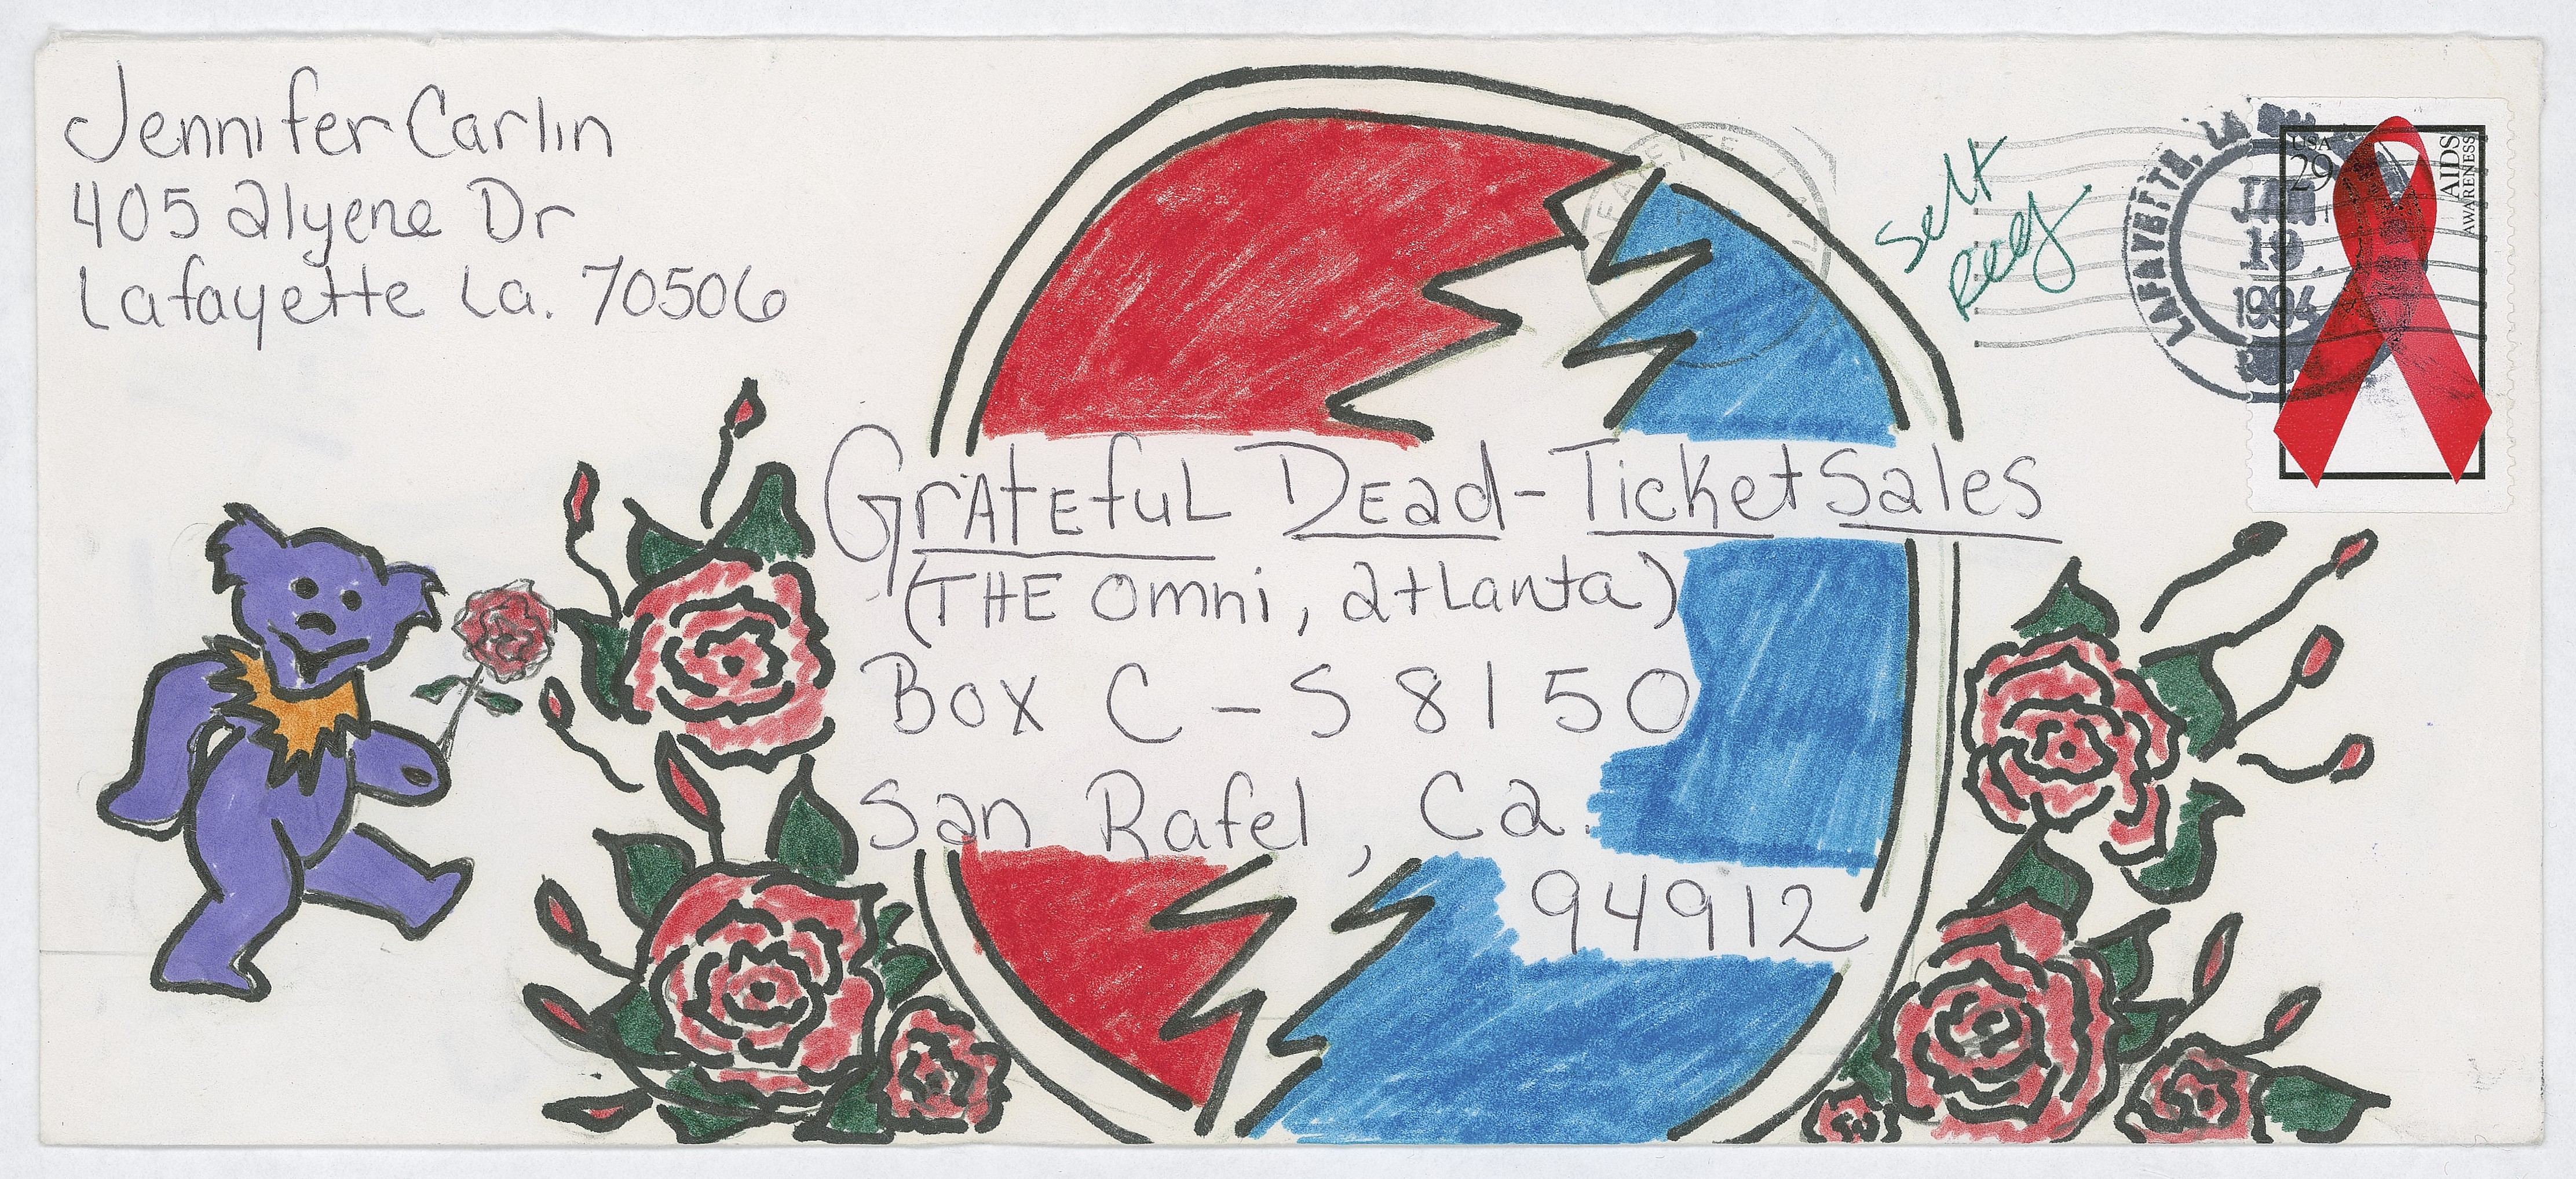 Jennifer Carlin
405 alyene Dr
Lafayette La. 70506
Self
Reg
LAFAYETTE, LA
JAN
19
1994
USA
29
AIDS
AWARENESS
GrAtEfuL DEad - Ticket Sales
(THE Omni, atLanta)
Box C - S 8150
San Rafel, Ca.
94912